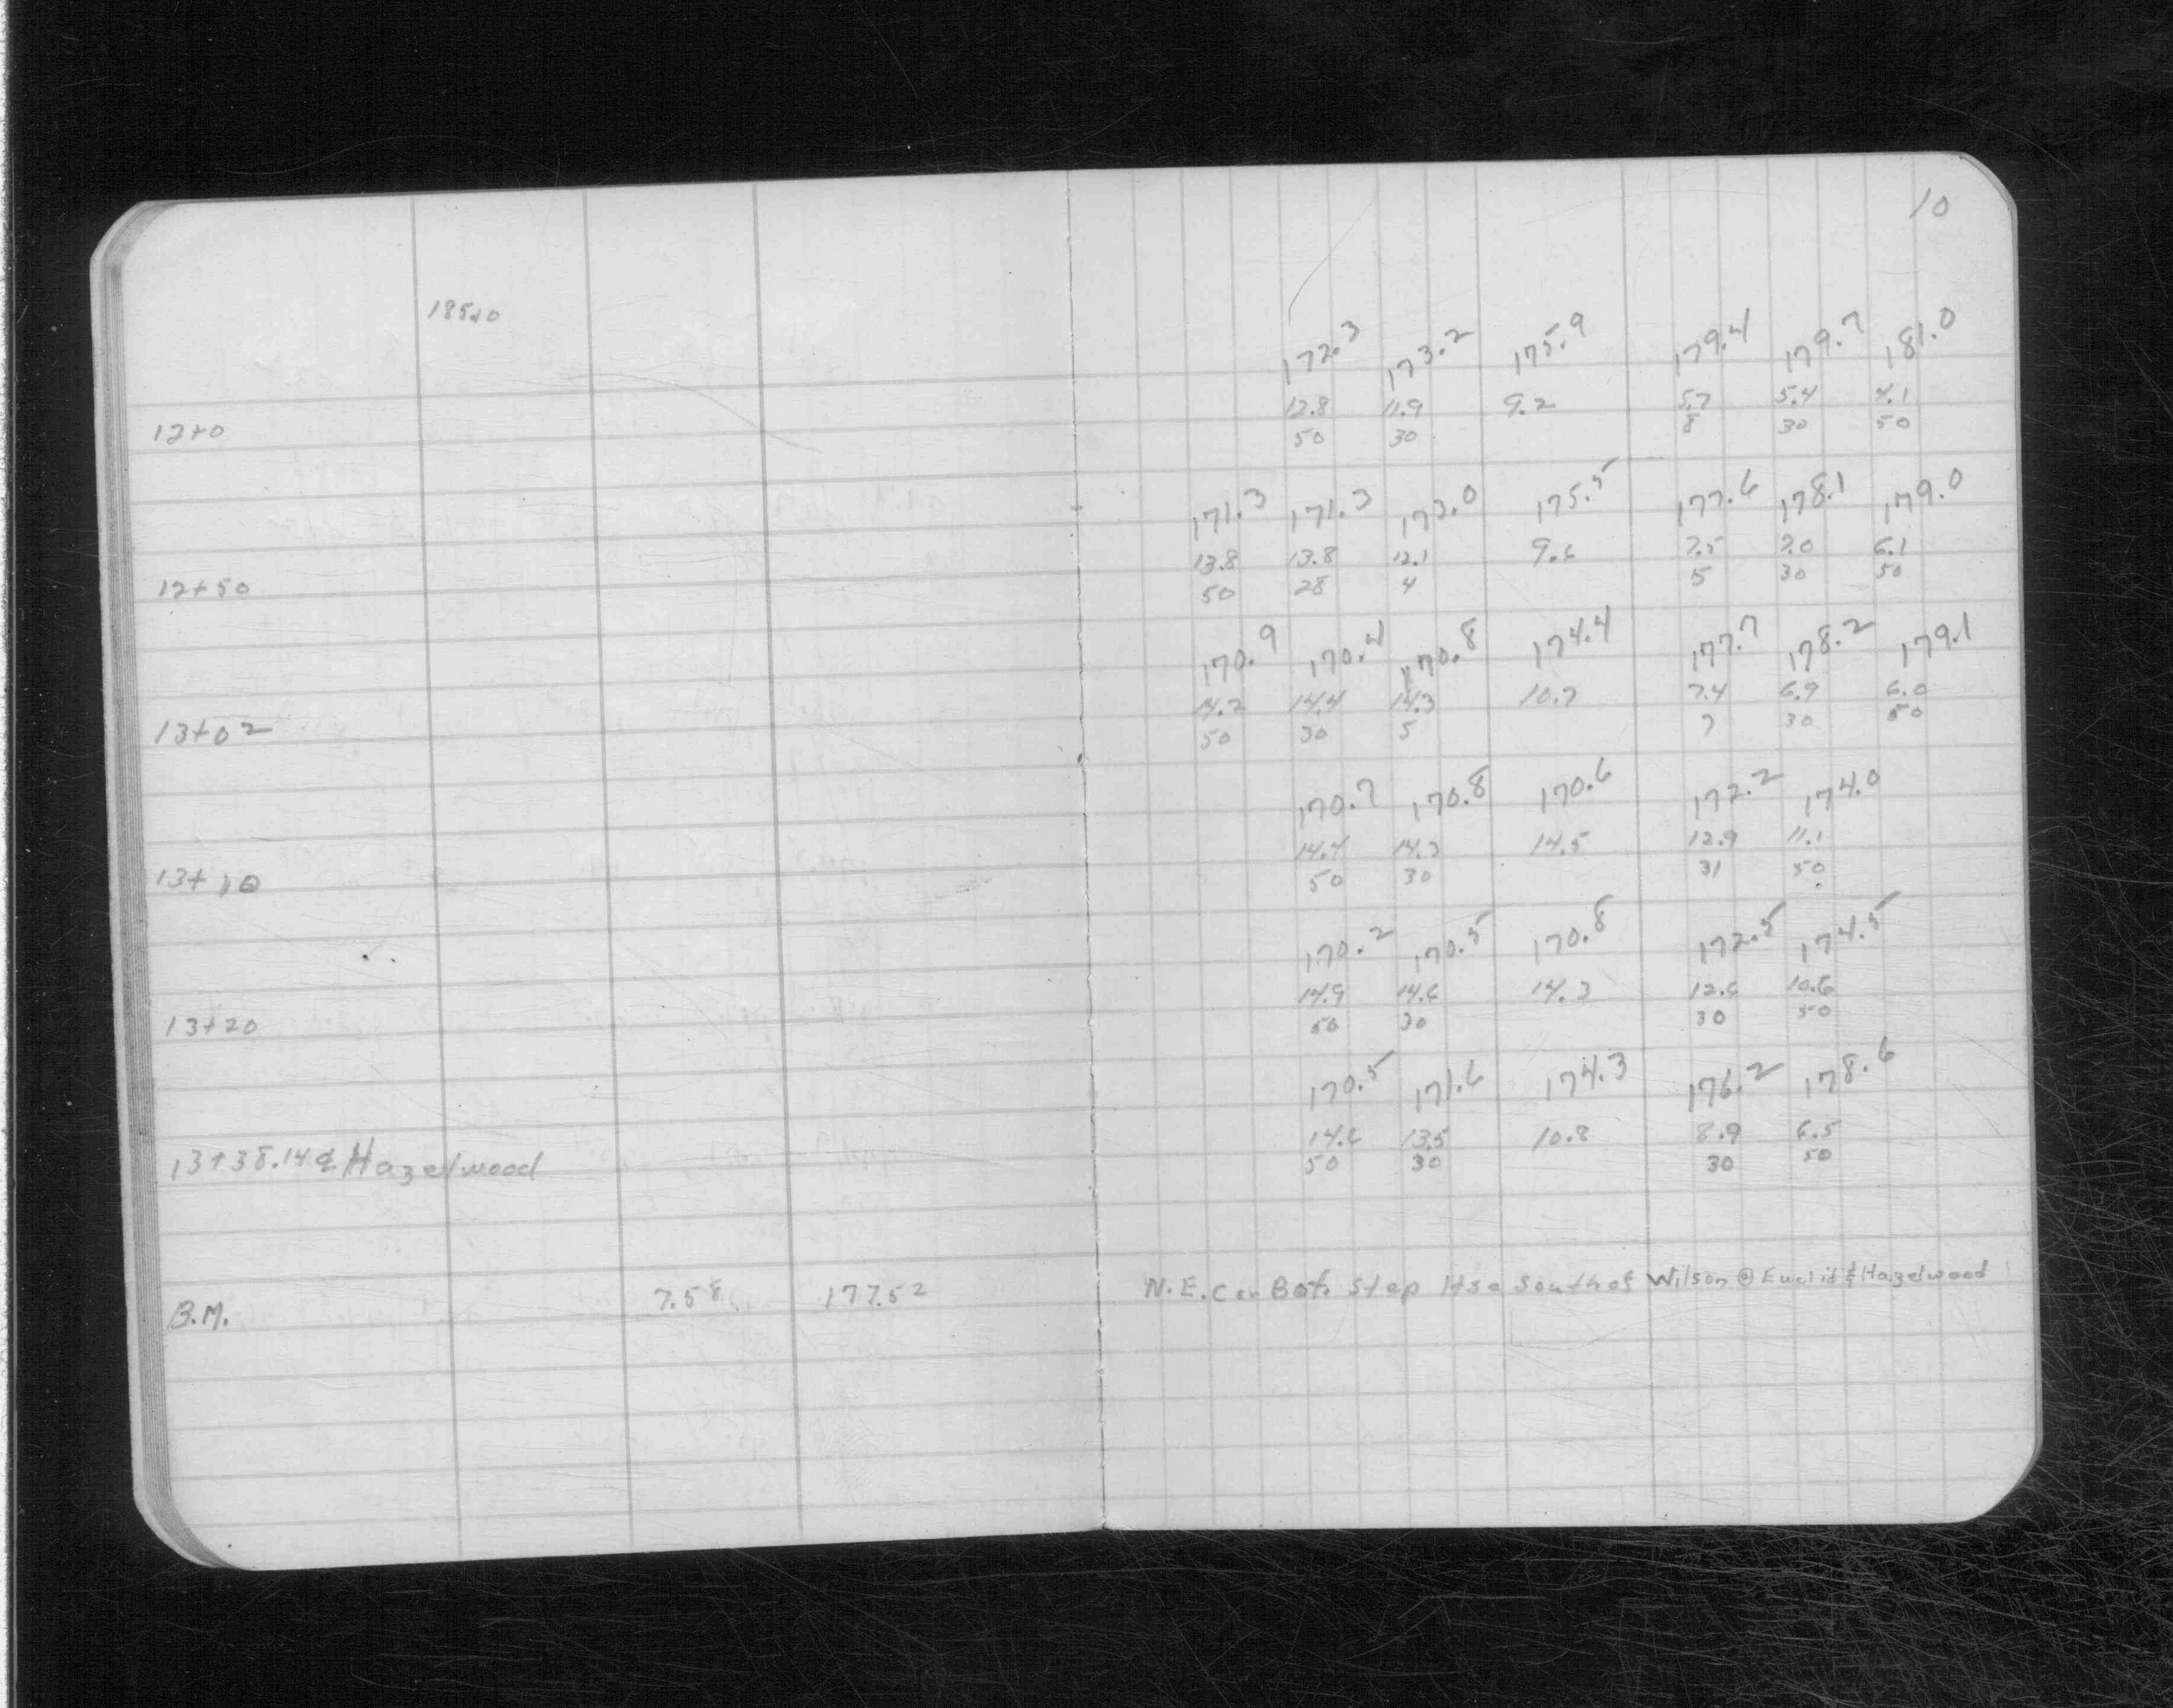 10
185.10
172.3 173.2 175.9 179.4 179.7 181.0
12.8 11.9 9.2 5.7 5.4 4.1
12+0 50 30 8 30 50
171.3 171.3 173.0 175.5 177.6 178.1 179.0
13.8 13.8 12.1 9.6 7.5 7.0 6.1
12+50 50 28 4 5 30 50
170.9 170.4 170.8 174.4 177.7 178.2 179.1
14.2 14.4 14.3 10.7 7.4 6.9 6.0
13+02 50 30 5 7 30 50
170.7 170.8 170.6 172.2 174.0
14.4 14.3 14.5 12.9 11.1
13+10 50 30 31 50
170.2 170.5 170.8 172.5 174.5
14.9 14.6 14.3 12.6 10.6
13+20 50 30 30 50
170.5 171.6 174.3 176.2 178.6
14.6 13.5 10.8 8.9 6.5
13+38.14 ℄ Hazelwood 50 30 30 50
B.M. 7.58 177.52 N.E. Cor Bot. Step Hse South of Wilson @ Euclid & Hazelwood